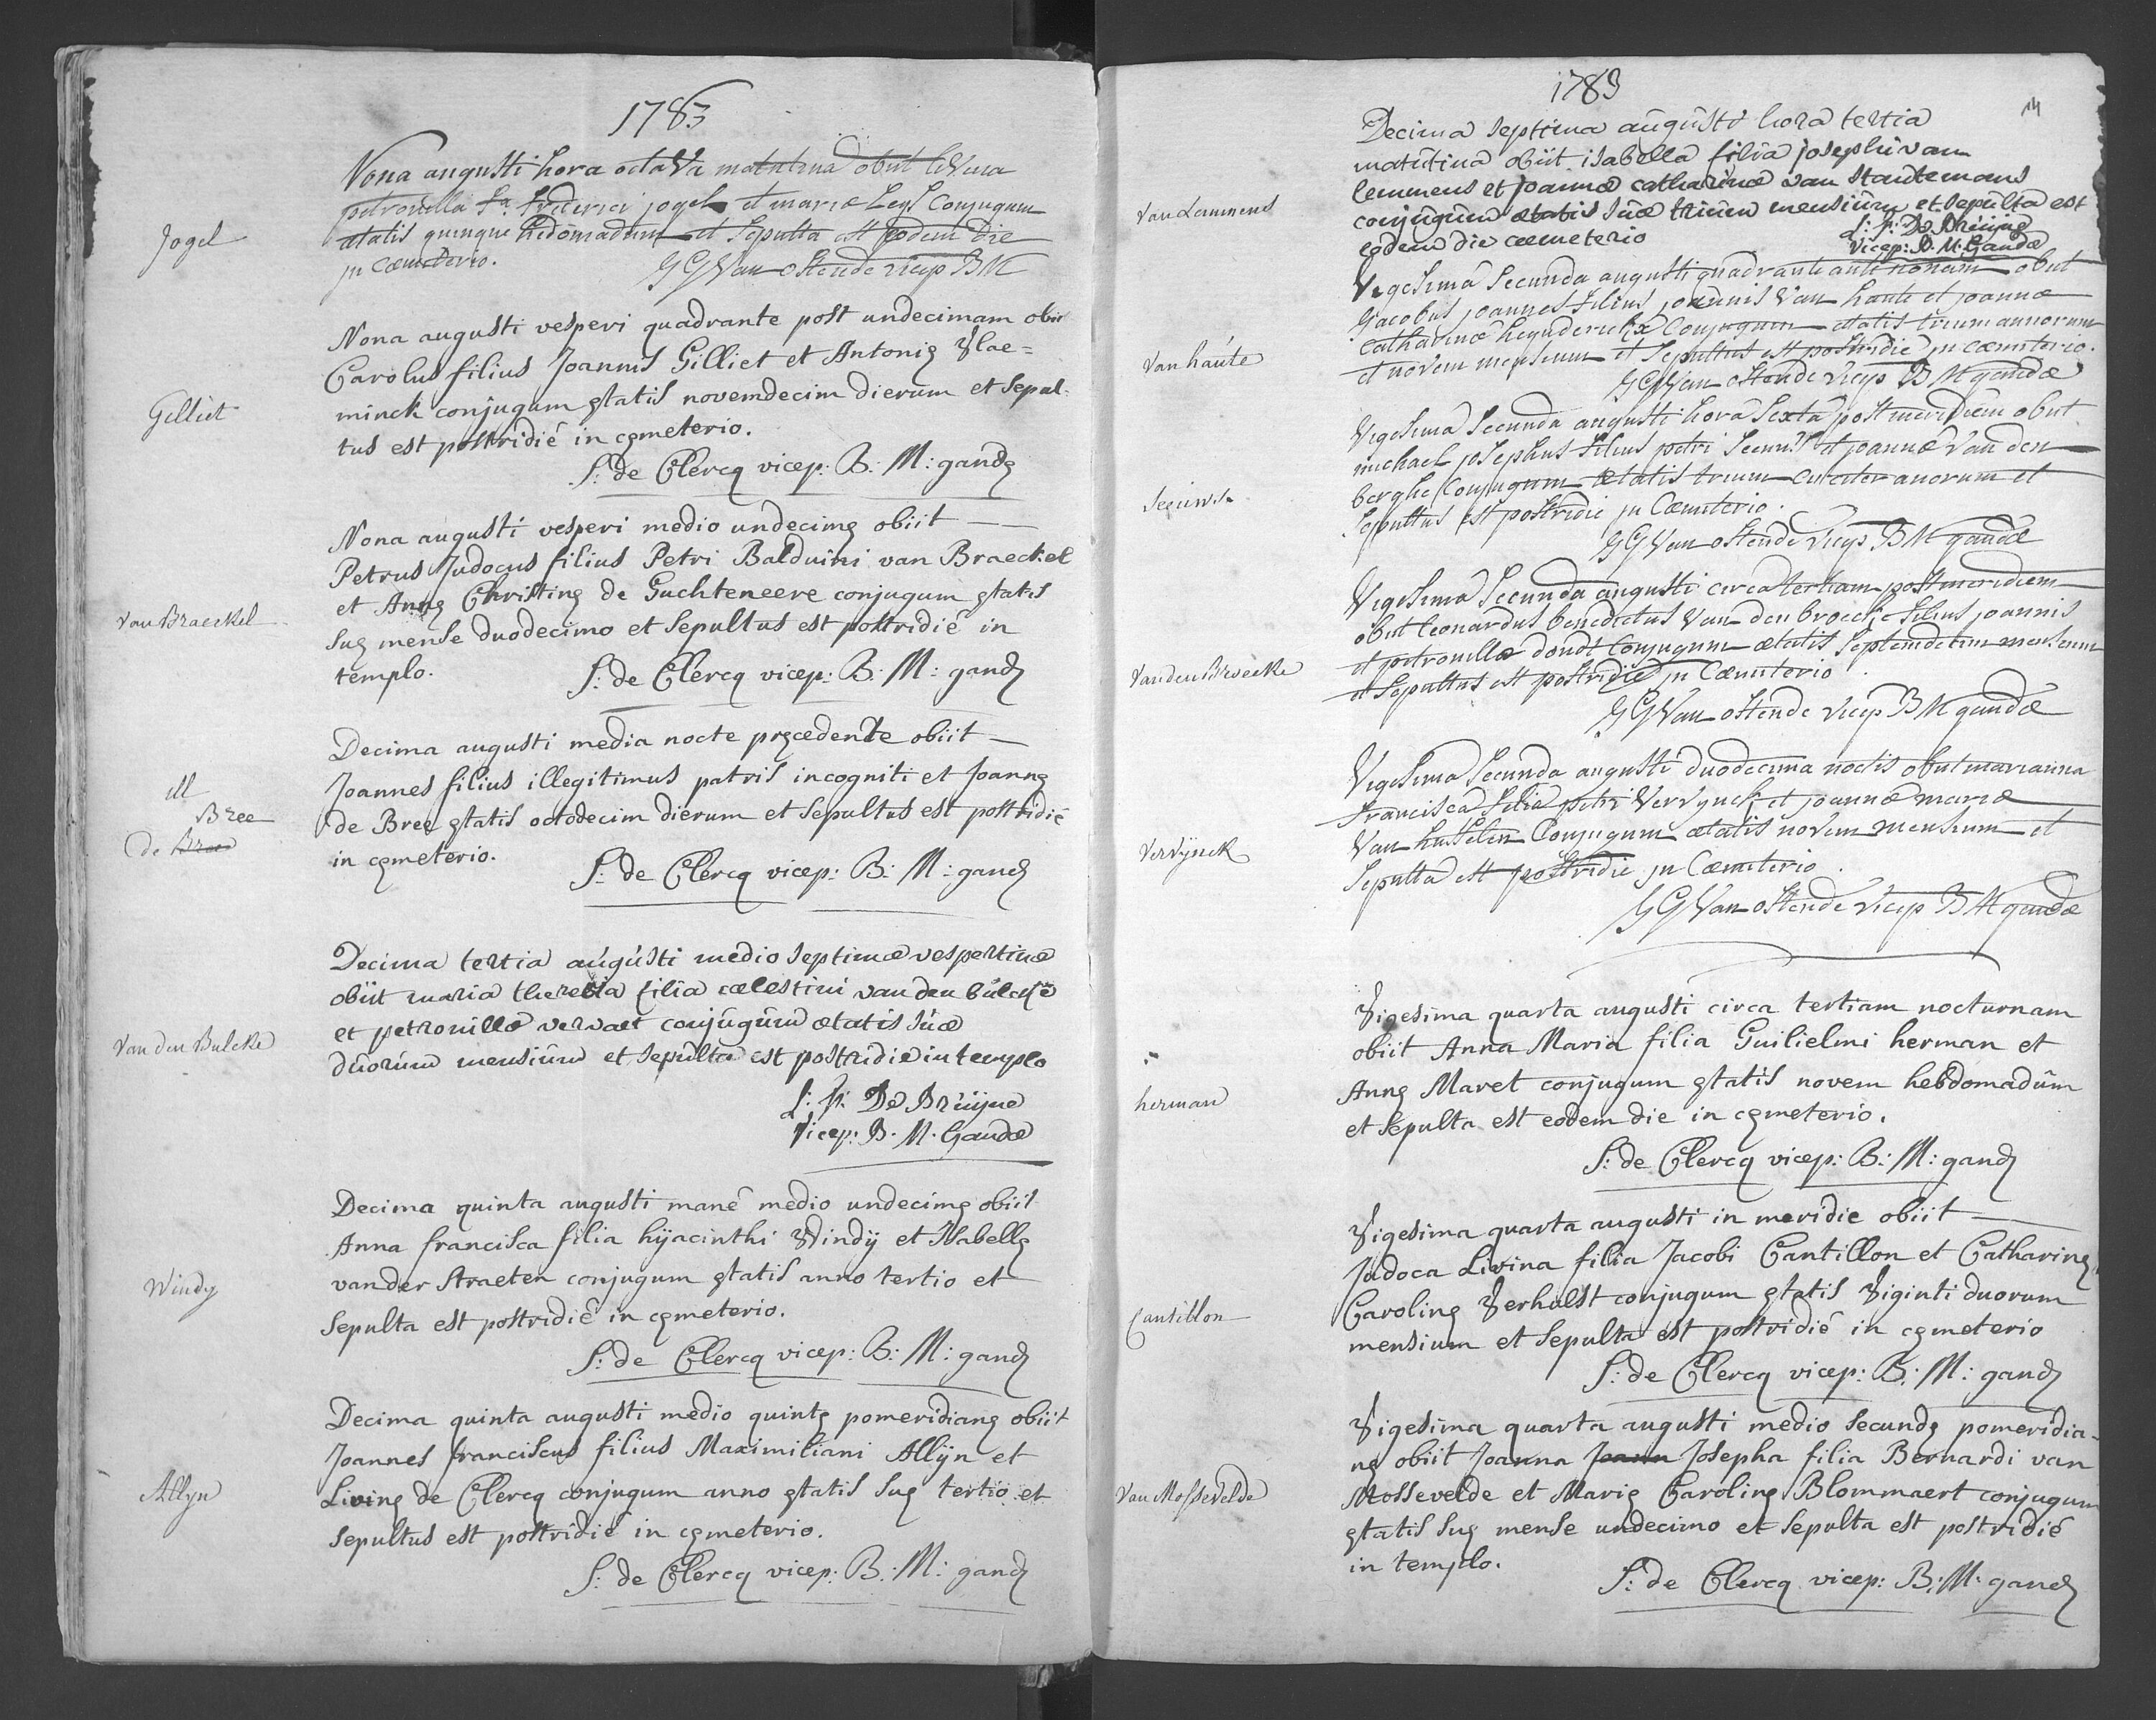 1783
Jogel
Nona augusti hora octava matutina obiit livina
petronella fa. friderici jogel et mariæ Leys Conjugum
ætatis quinque hebdomadum et Sepulta est eodem die
jn Cœmeterio.
GG Van Ostende vicep BM
Gelliet
Nona augusti vesperi quadrante post undecimam obiit
Carolus filius Joannis Gilliet et Antonię Vlae=
minck conjugum ętatis novemdecim dierum et Sepul-
tus est postridié in cęmeterio.
S: de Clercq vicep: B: M: gandę
Van Braeckel
Nona augusti vesperi medio undecimę obiit
Petrus Judocus filius Petri Balduini van Braeckel
et Annę Christinę de Guchteneere conjugum ętatis
suę mense duodecimo et Sepultus est postridié in
templo.
S: de Clercq vicep: B: M: gandę
ill
Bree
de Bree
Decima augusti media nocte pręcedente obiit
Joannes filius illegitimus patris incogniti et Joannę
de Bree ętatis octodecim dierum et Sepultus est postridié
in cęmeterio.
S: de Clercq vicep: B: M: gandę
Van den Bulcke
Decima tertia augústi medio septimæ vespertinæ
obiit maria theresia filia cælestini van den búlcke
et petronillæ vervaet conjúgúm ætatis súæ
dúorúm mensiúm et sepúlta est postridie in templo
L: P: De Brúijne
vicep: B. M. Gandæ
Windy
Decima quinta augusti mané medio undecimę obiit
Anna francisca filia hijacinthi Windij et Isabellę
vander Straeten conjugum ętatis anno tertio et
Sepulta est postridié in cęmeterio.
S: de Clercq vicep: B: M: gandę
Allyn
Decima quinta augusti medio quintę pomeridianę obiit
Joannes franciscus filius Maximiliani Allijn et
Livinę de Clercq conjugum anno ętatis suę tertio et
Sepultus est postridié in cęmeterio.
S: de Clercq vicep: B: M: gandę
1783
14
Van Lemmens
Decima septima aúgústi hora tertia
matútina obiit isabella filia josephi van
lemmens et joannæ catharinæ van Stautemans
conjúgúm ætatis súæ triúm mensiúm et sepúlta est
eodem die cæmeterio
L: P: De Brúijne
vicep: B. M. Gandæ
Van haúte
Vigesima Secunda augusti quadrante ante nonam obiit
Jacobus joannes filius joannis Van haute et joannæ
catharinæ heynderickx Conjugum ætatis trium annorum
et novem mensium et Sepultus est postridie jn cæmeterio.
GG Van Ostende vicep BM gandæ
Seeuws
Vigesima Secunda augusti hora Sexta postmeridiem obiit
michael josephus filius petri Seeuws et joannæ Van den
berghe Conjugum ætatis trium circiter anorum et
Sepultus est postridie jn Cœmeterio.
GG Van Ostende vicep BM gandæ
Van den Broecke
Vigesima Secunda augusti circa tertiam postmeridiem
obiit leonardus benedictus Van den broecke filius joannis
et petronillæ dondt Conjugum ætatis Septemdecim mensium
et Sepultus est postridie jn Cœmeterio
GG Van Ostende vicep BM gandæ
Vervijnck
Vigesima Secunda augusti duodecima noctis obiit marianna
francisca filia petri Vervynck et joannæ mariæ
Van husselen Conjugum ætatis novem mensium et
Sepulta est postridie jn Cœmeterio.
GG Van Ostende vicep BM gandæ
herman
Vigesima quarta augusti circa tertiam nocturnam
obiit Anna Maria filia Guilielmi herman et
Annę Maret conjugum ętatis novem hebdomadúm
et Sepulta est eodem die in cęmeterio.
S: de Clercq vicep: B: M: gandę
Cantillon
Vigesima quarta augusti in meridie obiit
Judoca Livina filia Jacobi Cantillon et Catharinę
Carolinę Verhulst conjugum ętatis Viginti duorum
mensium et Sepulta est postridié in cęmeterio
S: de Clercq vicep: B: M: gandę
Van Mossevelde
Vigesima quarta augusti medio secundę pomeridia-
nę obiit Joanna Joann Josepha filia Bernardi van
Mossevelde et Marię Carolinę Blommaert conjugum
ętatis suę mense undecimo et Sepulta est postridié
in templo.
S: de Clercq vicep: B: M: gandę